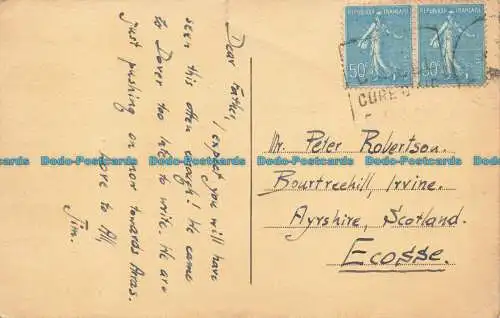 Dear Father,
I expect you will have
seen this often enough! We came
to Dover too late to write. We are
just pushing on now towards Arras.
Love to All,
Jim.
REPUBLIQUE FRANÇAISE
50c
REPUBLIQUE FRANÇAISE
50c
CURE
Mr. Peter Robertson.
Bourtreehill, Irvine.
Ayrshire, Scotland.
Ecosse.
Dodo-Postcards Dodo-Postcards Dodo-Postcards Dodo-Postcards Dodo-Postcards